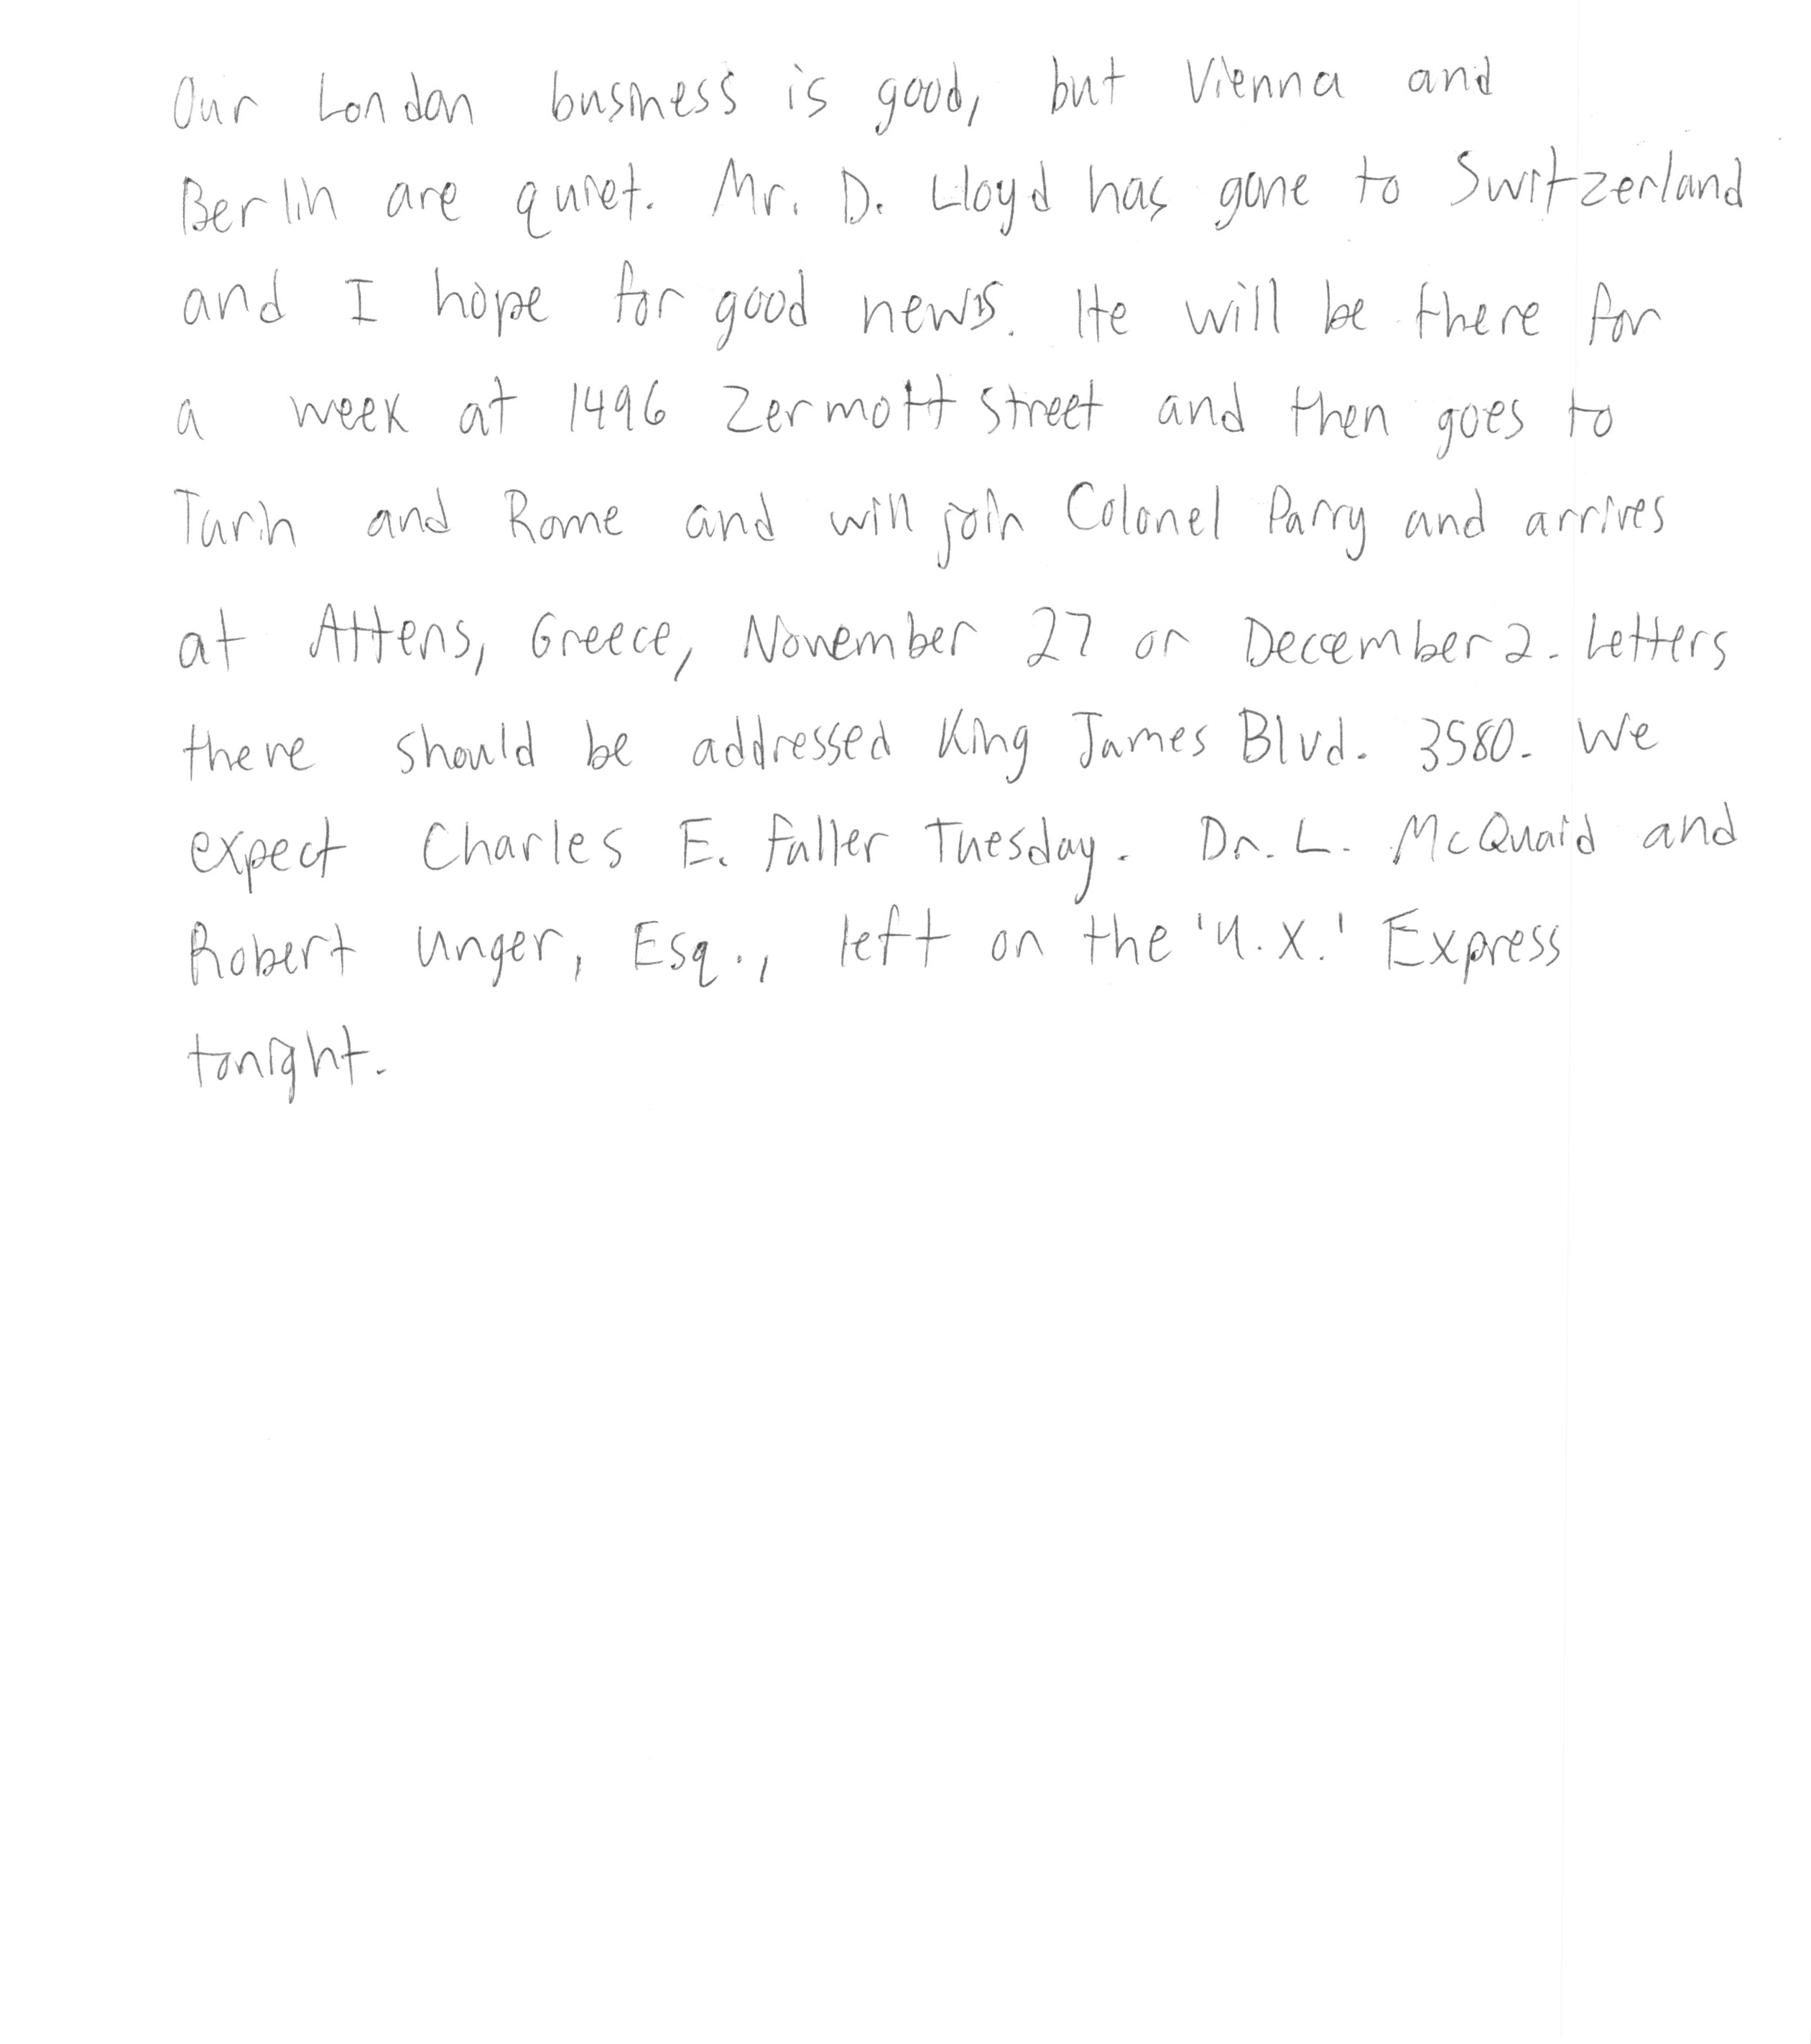 Our London business is good, but Vienna and
Berlin are quiet. Mr. D. Lloyd has gone to Switzerland
and I hope for good news. He will be there for
a week at 1496 Zermott Street and then goes to
Turin and Rome and will join Colonel Parry and arrives
at Attens, Greece, November 27 or December 2. Letters
there should be addressed King James Blvd. 3580. We
expect Charles E. Fuller Tuesday. Dr. L. McQuaid and
Robert Unger, Esq., left on the 'U.X.' Express
tonight.